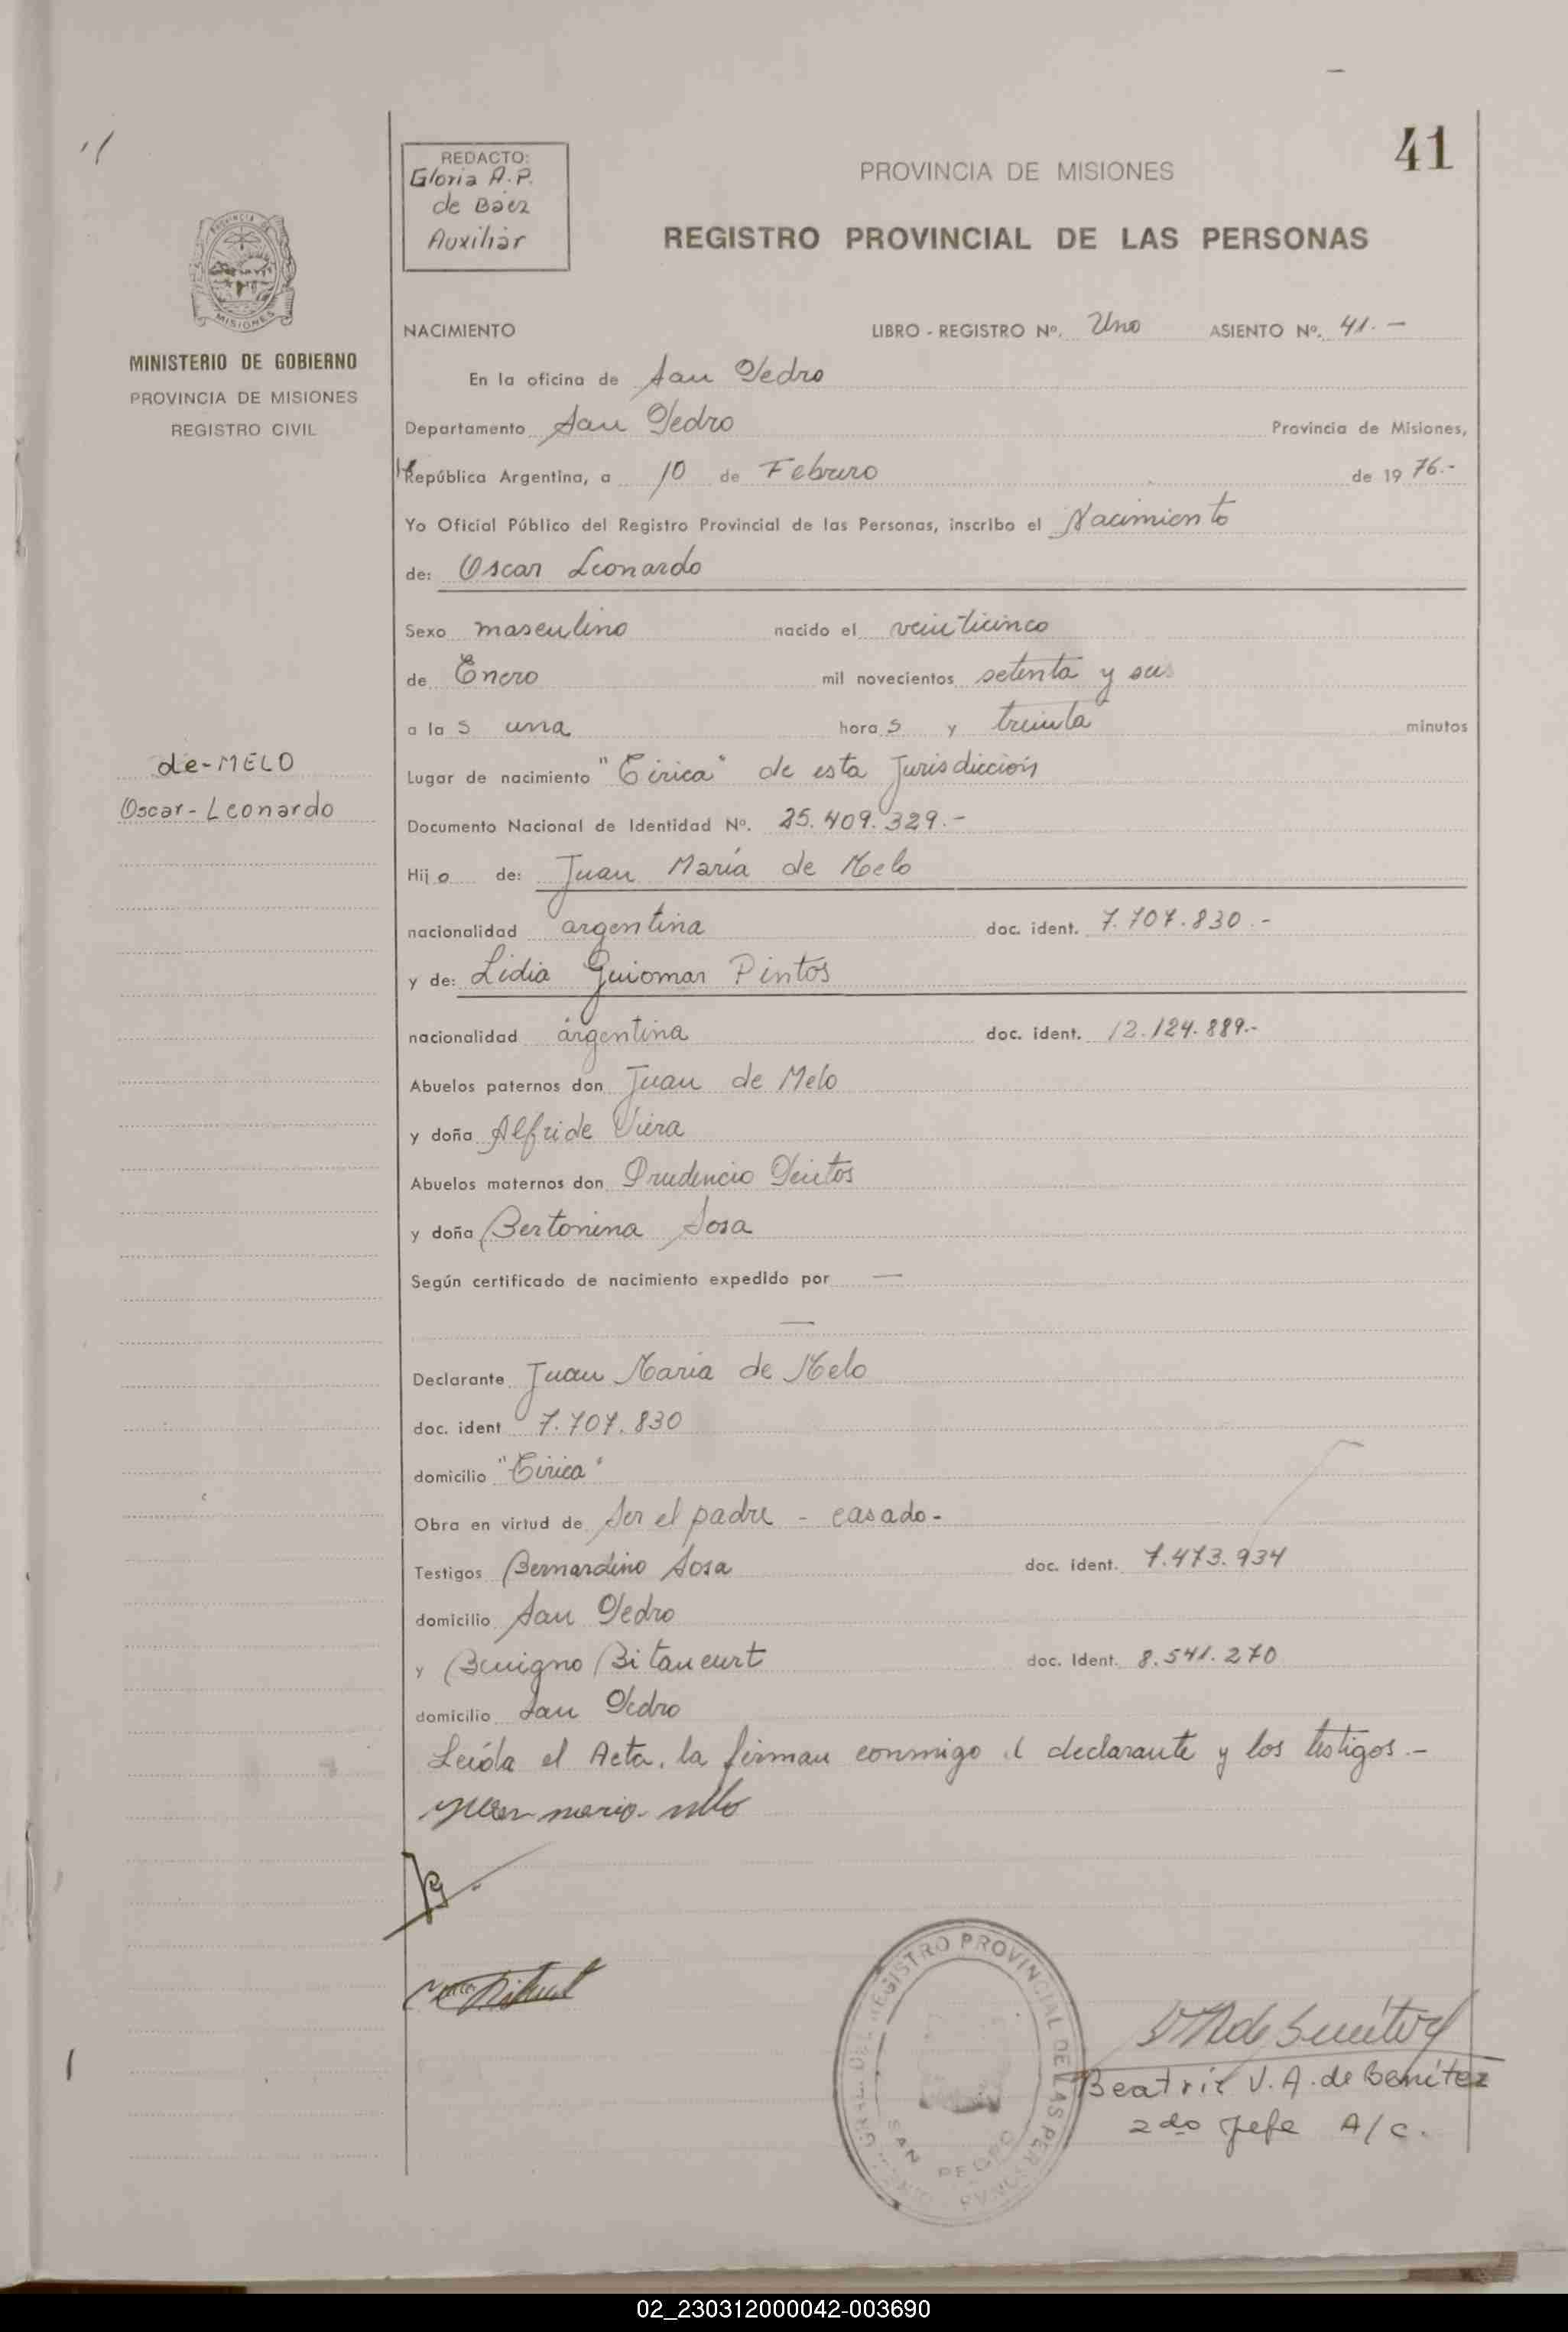 41
REDACTO:
Gloria A.P.
de Báez
Auxiliar
PROVINCIA DE MISIONES
REGISTRO PROVINCIAL DE LAS PERSONAS
MISIONES
MINISTERIO DE GOBIERNO
PROVINCIA DE MISIONES
REGISTRO CIVIL
NACIMIENTO LIBRO - REGISTRO Nº. Uno ASIENTO Nº. 41.-
En la oficina de San Pedro
Departamento San Pedro Provincia de Misiones,
República Argentina, a 10 de Febrero de 1976.-
Yo Oficial Público del Registro Provincial de las Personas, inscribo el Nacimiento
de: Oscar Leonardo
Sexo masculino nacido el veinticinco
de Enero mil novecientos setenta y seis
a las una horas y treinta minutos
de-MELO
Oscar-Leonardo
Lugar de nacimiento "Cirica" de esta Jurisdicción
Documento Nacional de Identidad Nº. 25.409.329.-
Hijo de: Juan María de Melo
nacionalidad argentina doc. ident. 7.707.830.-
y de: Lidia Guiomar Pintos
nacionalidad argentina doc. ident. 12.124.889.-
Abuelos paternos don Juan de Melo
y doña Alfride Viera
Abuelos maternos don Prudencio Pintos
y doña Bertonina Sosa
Según certificado de nacimiento expedido por —
—
Declarante Juan María de Melo
doc. ident 7.707.830
domicilio "Cirica"
Obra en virtud de Ser el padre - casado-
Testigos Bernardino Sosa doc. ident. 7.473.934
domicilio San Pedro
y Benigno Bitancurt doc. Ident. 8.541.270
domicilio San Pedro
Leída el Acta, la firman conmigo el declarante y los testigos.-
REGISTRO PROVINCIAL DE LAS PERSONAS
SAN PEDRO
Beatriz V.A. de Benítez
2do Jefe A/c.
02_230312000042-003690